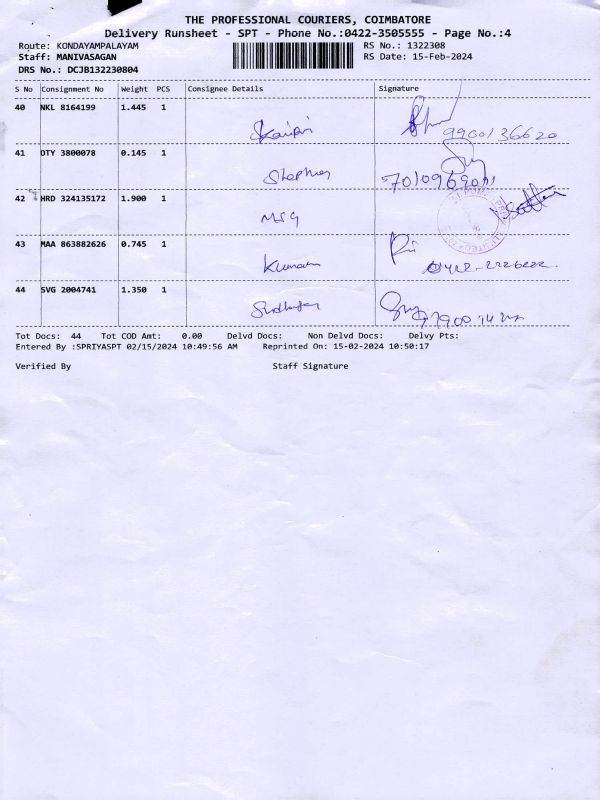 THE PROFESSIONAL COURIERS, COIMBATORE
Delivery Runsheet - SPT - Phone No.:0422-3505555 - Page No.:4
Route: KONDAYAMPALAYAM RS No.: 1322308
Staff: MANIVASAGAN RS Date: 15-Feb-2024
DRS No.: DCJB132230804
S No Consignment No Weight PCS Consignee Details Signature
40 NKL 8164199 1.445 1
9900136620
41 DTY 3800078 0.145 1
Stephen
42 HRD 324135172 1.900 1
43 MAA 863882626 0.745 1
Kumaran 0422-2226222
44 SVG 2004741 1.350 1
Tot Docs: 44 Tot COD Amt: 0.00 Delvd Docs: Non Delvd Docs: Delvy Pts:
Entered By :SPRIYASPT 02/15/2024 10:49:56 AM Reprinted On: 15-02-2024 10:50:17
Verified By Staff Signature